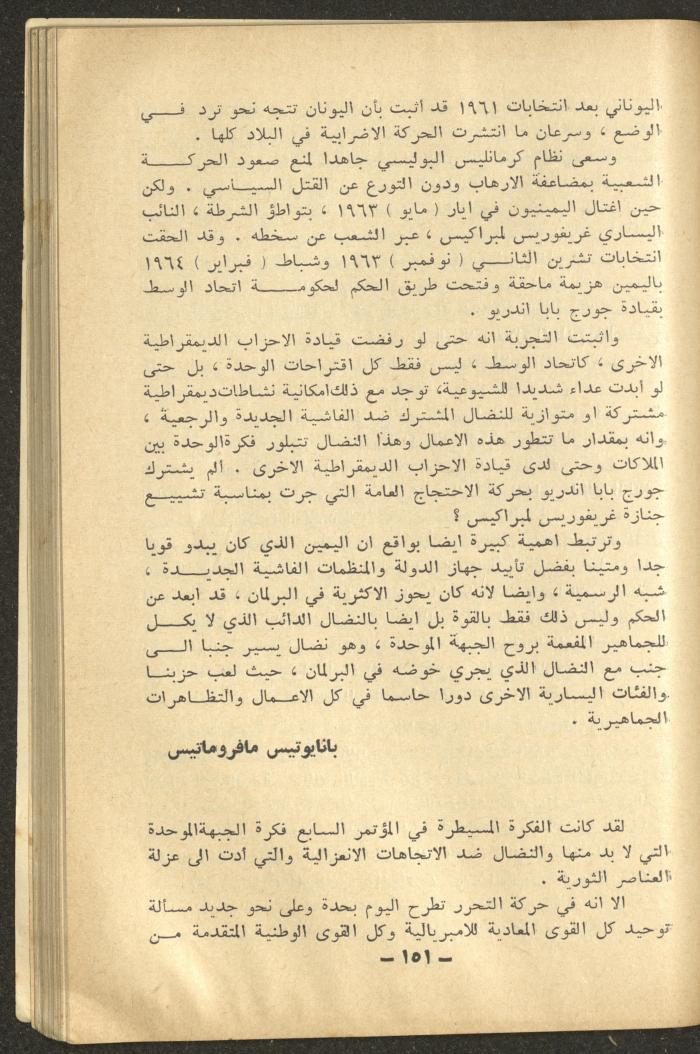 اليوناني بعد انتخابات ١٩٦١ قد اثبت بأن اليونان تتجه نحو ترد فـــي
الوضع ، وسرعان ما انتشرت الحركة الاضرابية في البلاد كلها .
وسعى نظام كرمانليس البوليسي جاهدا لمنع صعود الحركـــة
الشعبية بمضاعفة الارهاب ودون التورع عن القتل السيـــاسي . ولكن
حين اغتال اليمينيون في ايار ( مايو ) ١٩٦٣ ، بتواطؤ الشرطة ، النائب
اليساري غريفوريس لمبراكيس ، عبر الشعب عن سخطه . وقد الحقت
انتخابات تشرين الثانـــي ( نوفمبر ) ١٩٦٣ وشباط ( فبراير ) ١٩٦٤
باليمين هزيمة ماحقة وفتحت طريق الحكم لحكومـــة اتحاد الوسط
بقيادة جورج بابا اندريو .
واثبتت التجربة انه حتى لو رفضت قيادة الاحزاب الديمقراطية
الاخرى ، كاتحاد الوسط ، ليس فقط كل اقتراحات الوحدة ، بل حتى
لو ابدت عداء شديدا للشيوعية، توجد مع ذلك امكانية نشاطات ديمقراطية
مشتركة او متوازية للنضال المشترك ضد الفاشية الجديدة والرجعية ،
وانه بمقدار ما تتطور هذه الاعمال وهذا النضال تتبلور فكرة الوحدة بين
الملاكات وحتى لدى قيادة الاحزاب الديمقراطية الاخرى . الم يشترك
جورج بابا اندريو بحركة الاحتجاج العامة التي جرت بمناسبة تشييـــع
جنازة غريفوريس لمبراكيس ؟
وترتبط اهمية كبيرة ايضا بواقع ان اليمين الذي كان يبدو قويا
جدا ومتينا بفضل تأييد جهاز الدولة والمنظمات الفاشية الجديـــدة ،
شبه الرسمية ، وايضا لانه كان يحوز الاكثرية في البرلمان ، قد ابعد عن
الحكم وليس ذلك فقط بالقوة بل ايضا بالنضال الدائب الذي لا يكـــل
للجماهير المفعمة بروح الجبهة الموحدة ، وهو نضال يسير جنبا الـــى
جنب مع النضال الذي يجري خوضه في البرلمان ، حيث لعب حزبنـــا
والفئات اليسارية الاخرى دورا حاسما في كل الاعـــمال والتظـــاهرات
الجماهيرية .
بانايوتيس مافروماتيس
لقد كانت الفكرة المسيطرة في المؤتمر السابع فكرة الجبهة الموحدة
التي لا بد منها والنضال ضد الاتجاهات الانعزالية والتي أدت الى عزلة
العناصر الثورية .
الا انه في حركة التحرر تطرح اليوم بحدة وعلى نحو جديد مسألة
توحيد كل القوى المعادية للامبريالية وكل القوى الوطنية المتقدمة مـــن
– ١٥١ –